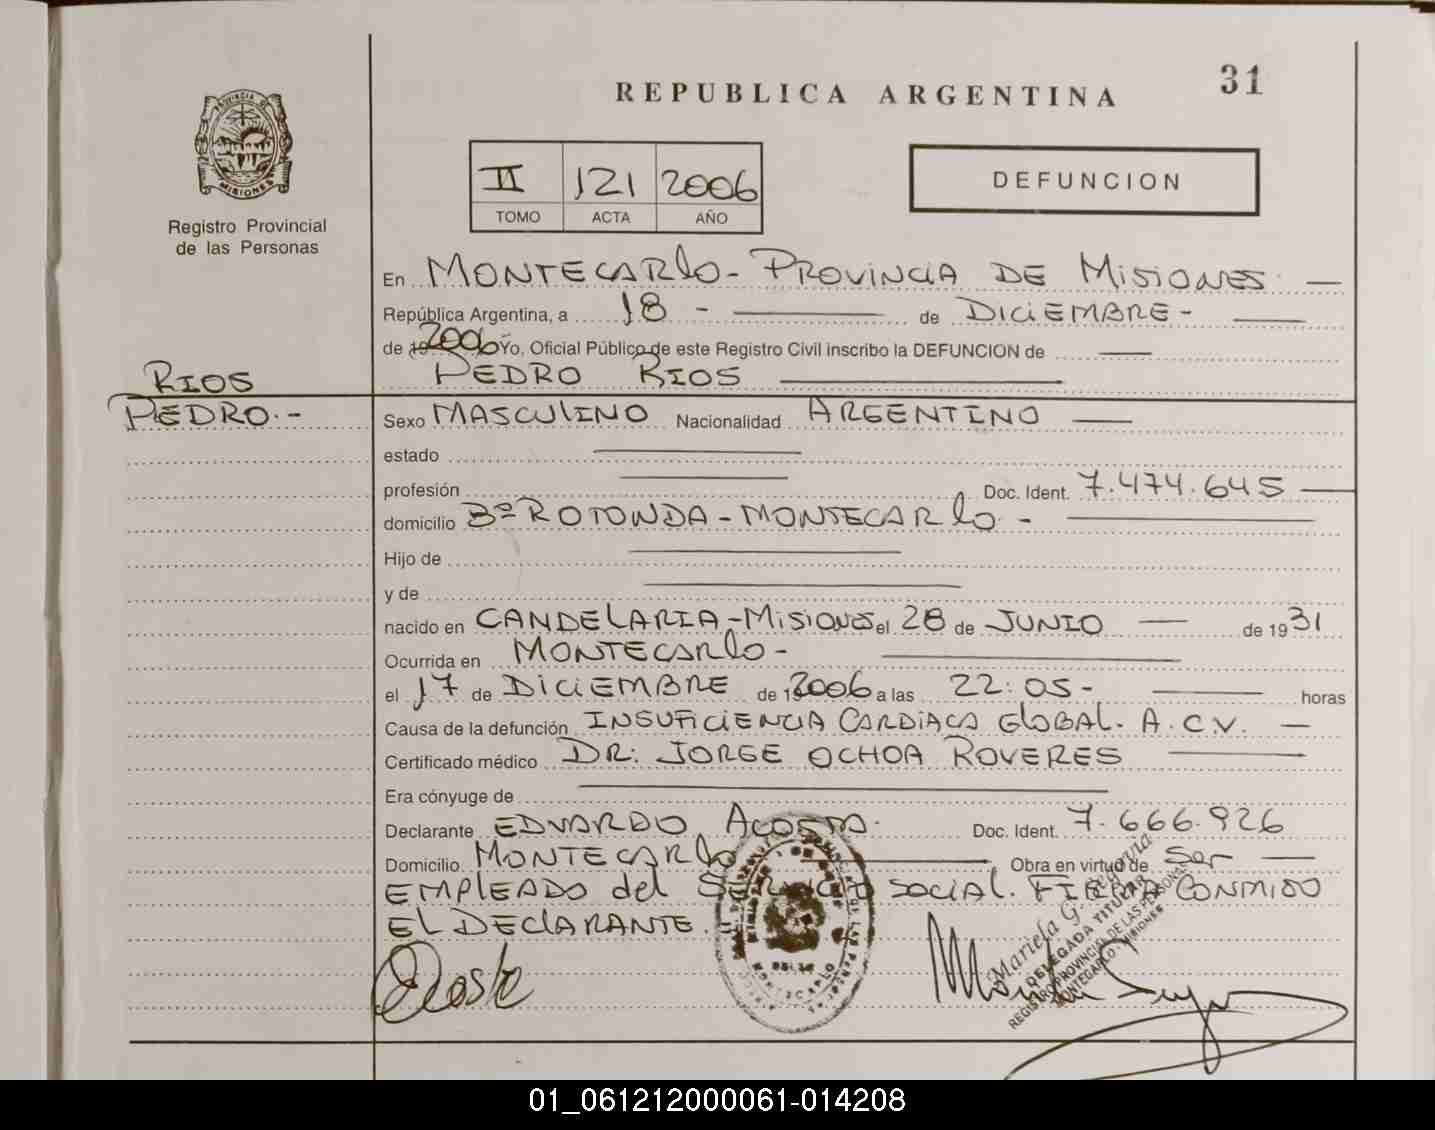 31
REPUBLICA ARGENTINA
PROVINCIA DE
MISIONES
Registro Provincial
de las Personas
II 121 2006
TOMO ACTA AÑO
DEFUNCION
En MONTECARLO - PROVINCIA DE MISIONES
República Argentina, a 18 - de DICIEMBRE -
de 19 2006 Yo, Oficial Público de este Registro Civil inscribo la DEFUNCION de
PEDRO RIOS
RIOS
PEDRO.-
Sexo MASCULINO Nacionalidad ARGENTINO
estado
profesión Doc. Ident. 7.474.645
domicilio Bº ROTONDA - MONTECARLO -
Hijo de
y de
nacido en CANDELARIA - MISIONES el 28 de JUNIO de 19 31
Ocurrida en MONTECARLO -
el 17 de DICIEMBRE de 2006 a las 22:05- horas
Causa de la defunción INSUFICIENCIA CARDIACA GLOBAL. A.C.V.
Certificado médico DR: JORGE OCHOA ROVERES
Era cónyuge de
Declarante EDUARDO ACOSTA. Doc. Ident. 7.666.926
Domicilio MONTECARLO Obra en virtud de Ser
EMPLEADO del SERVICIO SOCIAL. FIRMA CONMIGO
EL DECLARANTE.
Acosta
Mariela G. Segovia
DELEGADA TITULAR
REGISTRO PROVINCIAL DE LAS PERSONAS
MONTECARLO - MISIONES
01_061212000061-014208